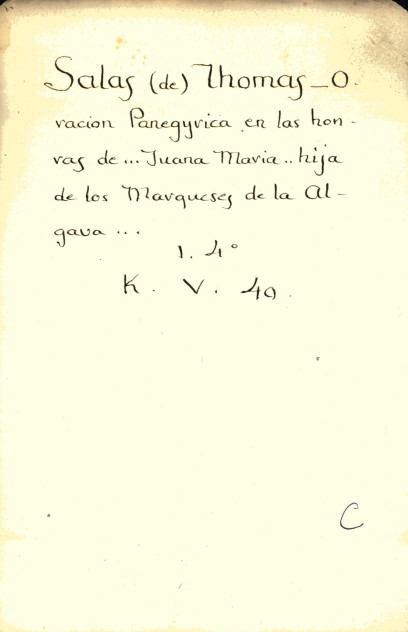 Salas (de) Thomas_O-
racion Panegyrica en las hon-
ras de ... Juana Maria .. hija
de los Marqueses de la Al-
gava ...
1. 4°
K. V. 49.
C